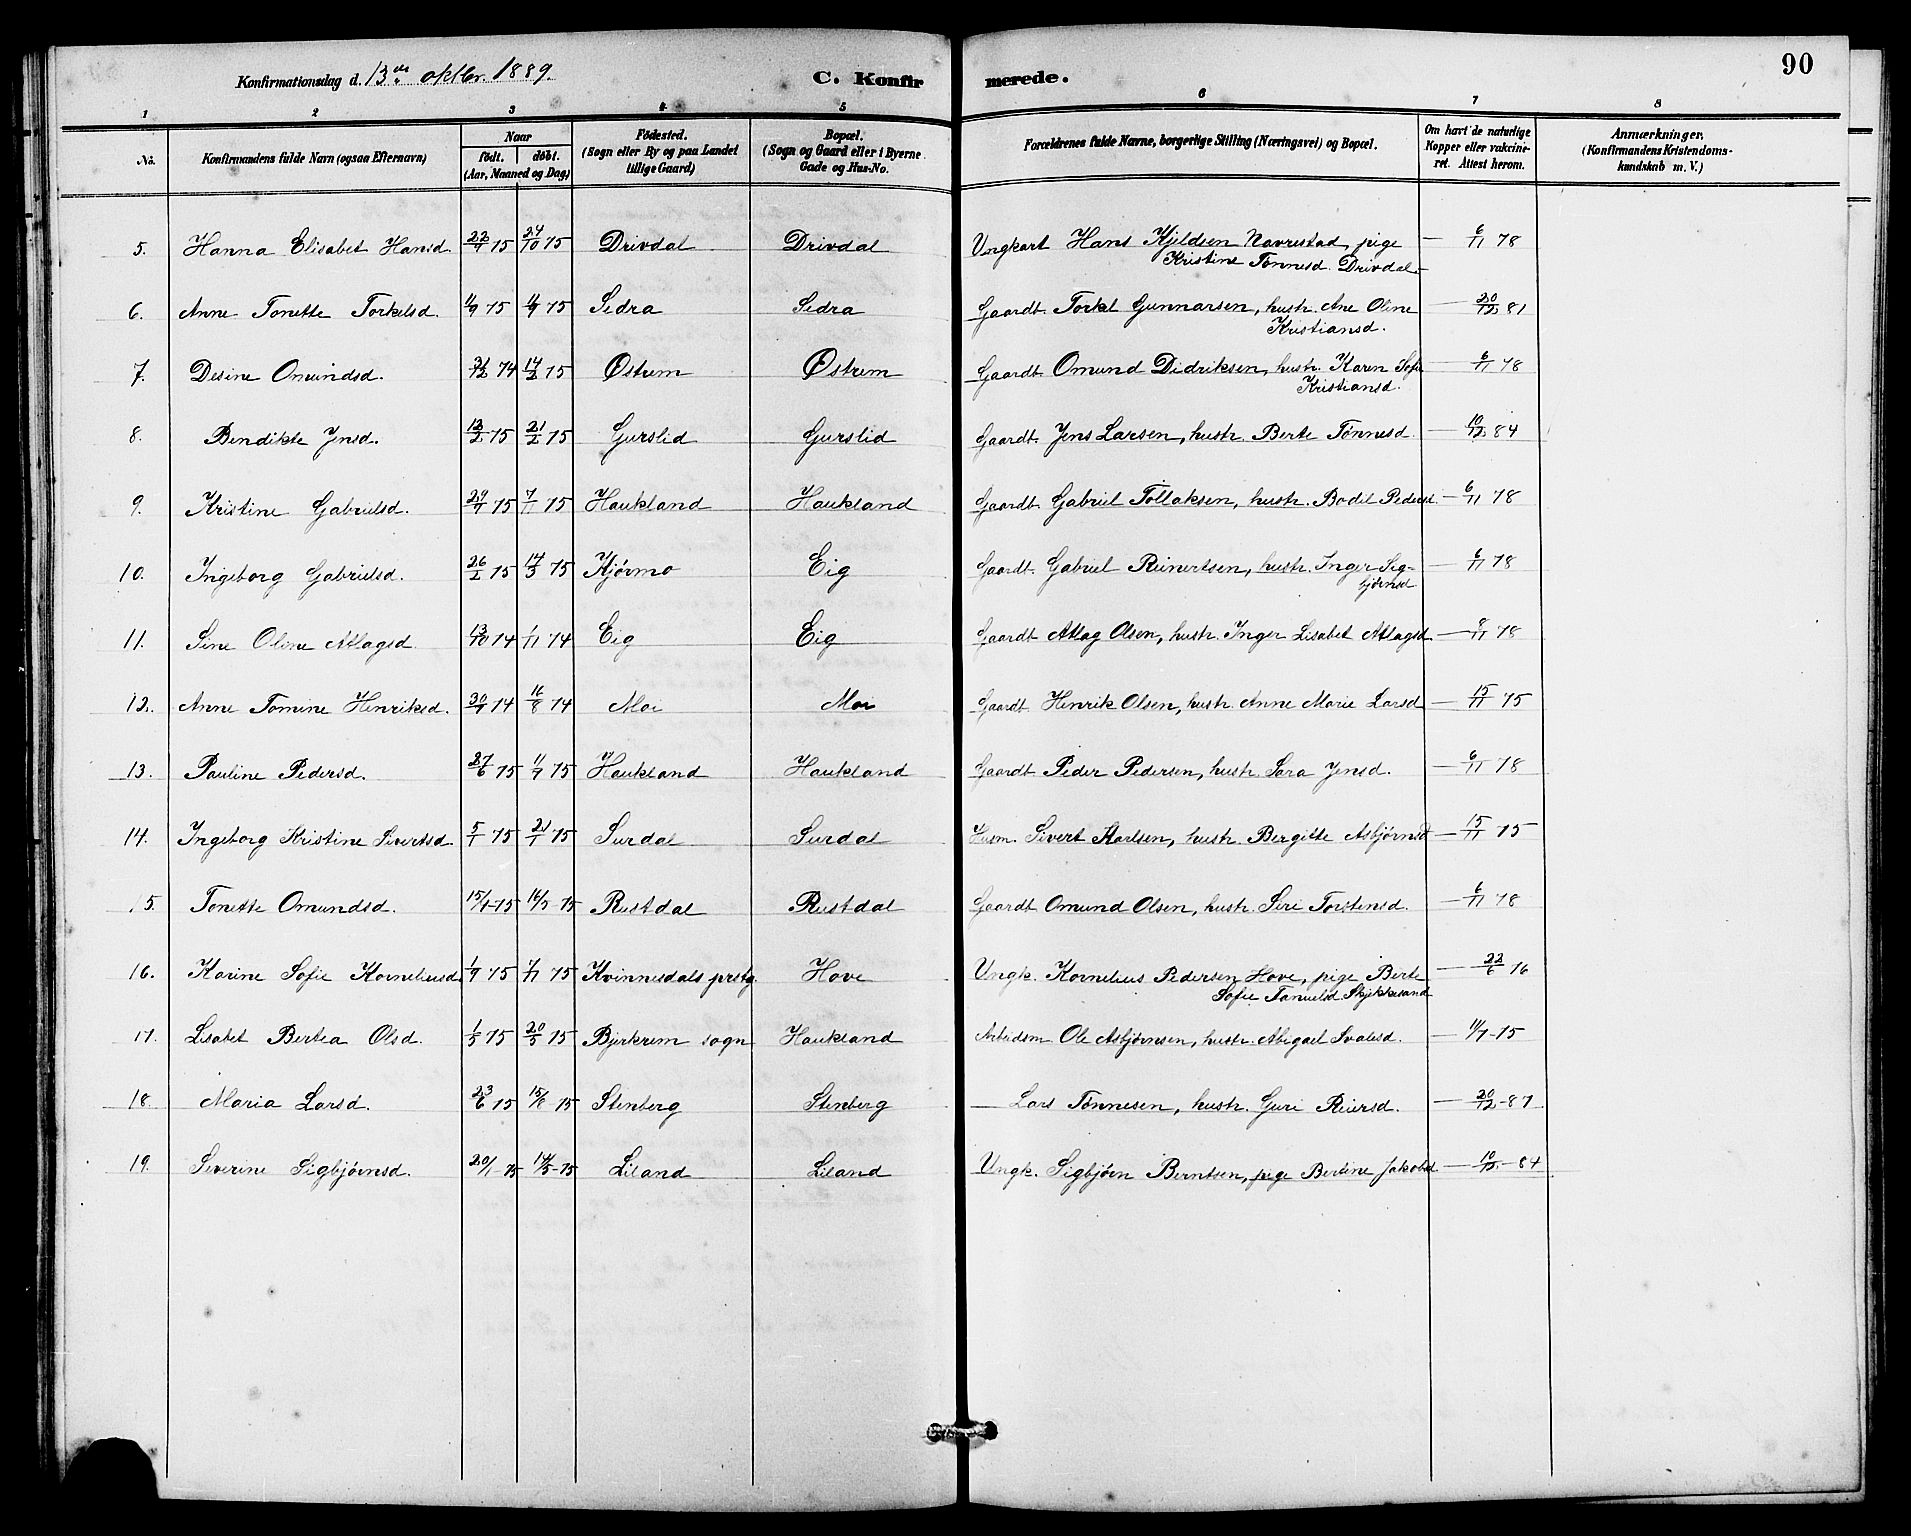 Konfirmationsdag d. 13de oktbr. 1889.
C. Konfirmerede.
90
1 2 3 4 5 6 7 8
No. Konfirmandens fulde Navn (ogsaa Efternavn) Naar født. døbt. (Aar, Maaned og Dag) Fødested. (Sogn eller By og paa Landet tillige Gaard) Bopæl. (Sogn og Gaard eller i Byerne Gade og Hus-No. Forældrenes fulde Navne, borgerlige Stilling (Næringsvei) og Bopæl. Om havt de naturlige Kopper eller vakcineret. Attest herom. Anmærkninger. (Konfirmandens Kristendomskundskab m. V.)
5. Hanna Elisabet Hansd. 22/9 75 24/10 75 Drivdal Drivdal Ungkarl Hans Kjeldsen Navrestad, pige — 6/11 78
Kristine Tønnesd. Drivdal
6. Anne Tonette Torkelsd. 75 75 Sedra Sedra Gaardt. Torkel Gunnarsen, hustr. Ane Oline — 20/12 81
Kristiansd.
7. Desine Omundsd. 31/12 74 14/2 75 Østrem Østrem Gaardt. Omund Didriksen, hustr. Karen Sofie — 6/11 78
Kristiansd.
8. Bendikte Jensd. 12/2 75 21/2 75 Gurslid Gurslid Gaardt. Jens Larsen, hustr. Berte Tønnesd. — 10/12 84
9. Kristine Gabrielsd. 75 7/11 75 Haukland Haukland Gaardt. Gabriel Tollaksen, hustr. Bodil Pedersd — 6/11 78
10. Ingeborg Gabrielsd. 26/2 75 14/3 75 Kjørmo Eig Gaardt. Gabriel Reinertsen, hustr. Inger Sig- — 6/11 78
bjørnsd
11. Sine Oline Atlagsd. 13/10 74 1/11 74 Eig Eig Gaardt. Atlag Olsen, hustr. Inger Lisabet Atlagsd — 78
12. Anne Tomine Henriksd. 30/7 74 16/8 74 Moi Moi Gaardt. Henrik Olsen, hustr. Anne Marie Larsd — 15/11 75
13. Pauline Pedersd. 27/6 75 75 Haukland Haukland Gaardt. Peder Pedersen, hustr. Sara Jensd. — 6/11 78
14. Ingeborg Kristine Sivertsd. 5/1 75 21/1 75 Surdal Surdal Husm. Sivert Karlsen, hustr. Bergitte Asbjørnsd — 15/11 75
15. Tonette Omundsd. 75 75 Rustdal Rustdal Gaardt. Omund Olsen, hustr. Siri Torstensd. — 6/11 78
16. Karine Sofie Korneliusd. 1/9 75 7/11 75 Kvinnesdals prstg. Hove Ungk. Kornelius Pedersen Hove, pige Berte — 22/6 76
Sofie
17. Lisabet Bertea Olsd. 1/5 75 20/5 75 Bjerkrem sogn Haukland Arbeidsm. Ole Asbjørnsen, hustr. Abigael — 75
18. Maria Larsd. 23/6 75 15/8 - 75 Stenberg Stenberg — Lars Tønnesen, hustr. Guri Reiersd. — 20/12 - 81
19. Severine Sigbjørnsd. 20/1 - 75 14/3 - 75 Liland Liland Ungk. Sigbjørn Berntsen, pige Bertine Jakobsd — 10/12 - 84